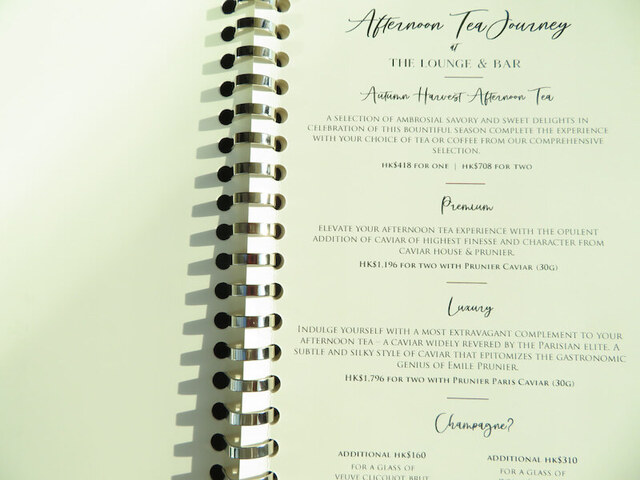 Afternoon Tea Journey
at
THE LOUNGE & BAR
Autumn Harvest Afternoon Tea
A SELECTION OF AMBROSIAL SAVORY AND SWEET DELIGHTS IN
CELEBRATION OF THIS BOUNTIFUL SEASON COMPLETE THE EXPERIENCE
WITH YOUR CHOICE OF TEA OR COFFEE FROM OUR COMPREHENSIVE
SELECTION.
HK$418 FOR ONE | HK$708 FOR TWO
Premium
ELEVATE YOUR AFTERNOON TEA EXPERIENCE WITH THE OPULENT
ADDITION OF CAVIAR OF HIGHEST FINESSE AND CHARACTER FROM
CAVIAR HOUSE & PRUNIER.
HK$1,196 FOR TWO WITH PRUNIER CAVIAR (30G)
Luxury
INDULGE YOURSELF WITH A MOST EXTRAVAGANT COMPLEMENT TO YOUR
AFTERNOON TEA – A CAVIAR WIDELY REVERED BY THE PARISIAN ELITE. A
SUBTLE AND SILKY STYLE OF CAVIAR THAT EPITOMIZES THE GASTRONOMIC
GENIUS OF EMILE PRUNIER.
HK$1,796 FOR TWO WITH PRUNIER PARIS CAVIAR (30G)
Champagne?
ADDITIONAL HK$160
FOR A GLASS OF
VEUVE CLICQUOT BRUT
ADDITIONAL HK$310
FOR A GLASS OF